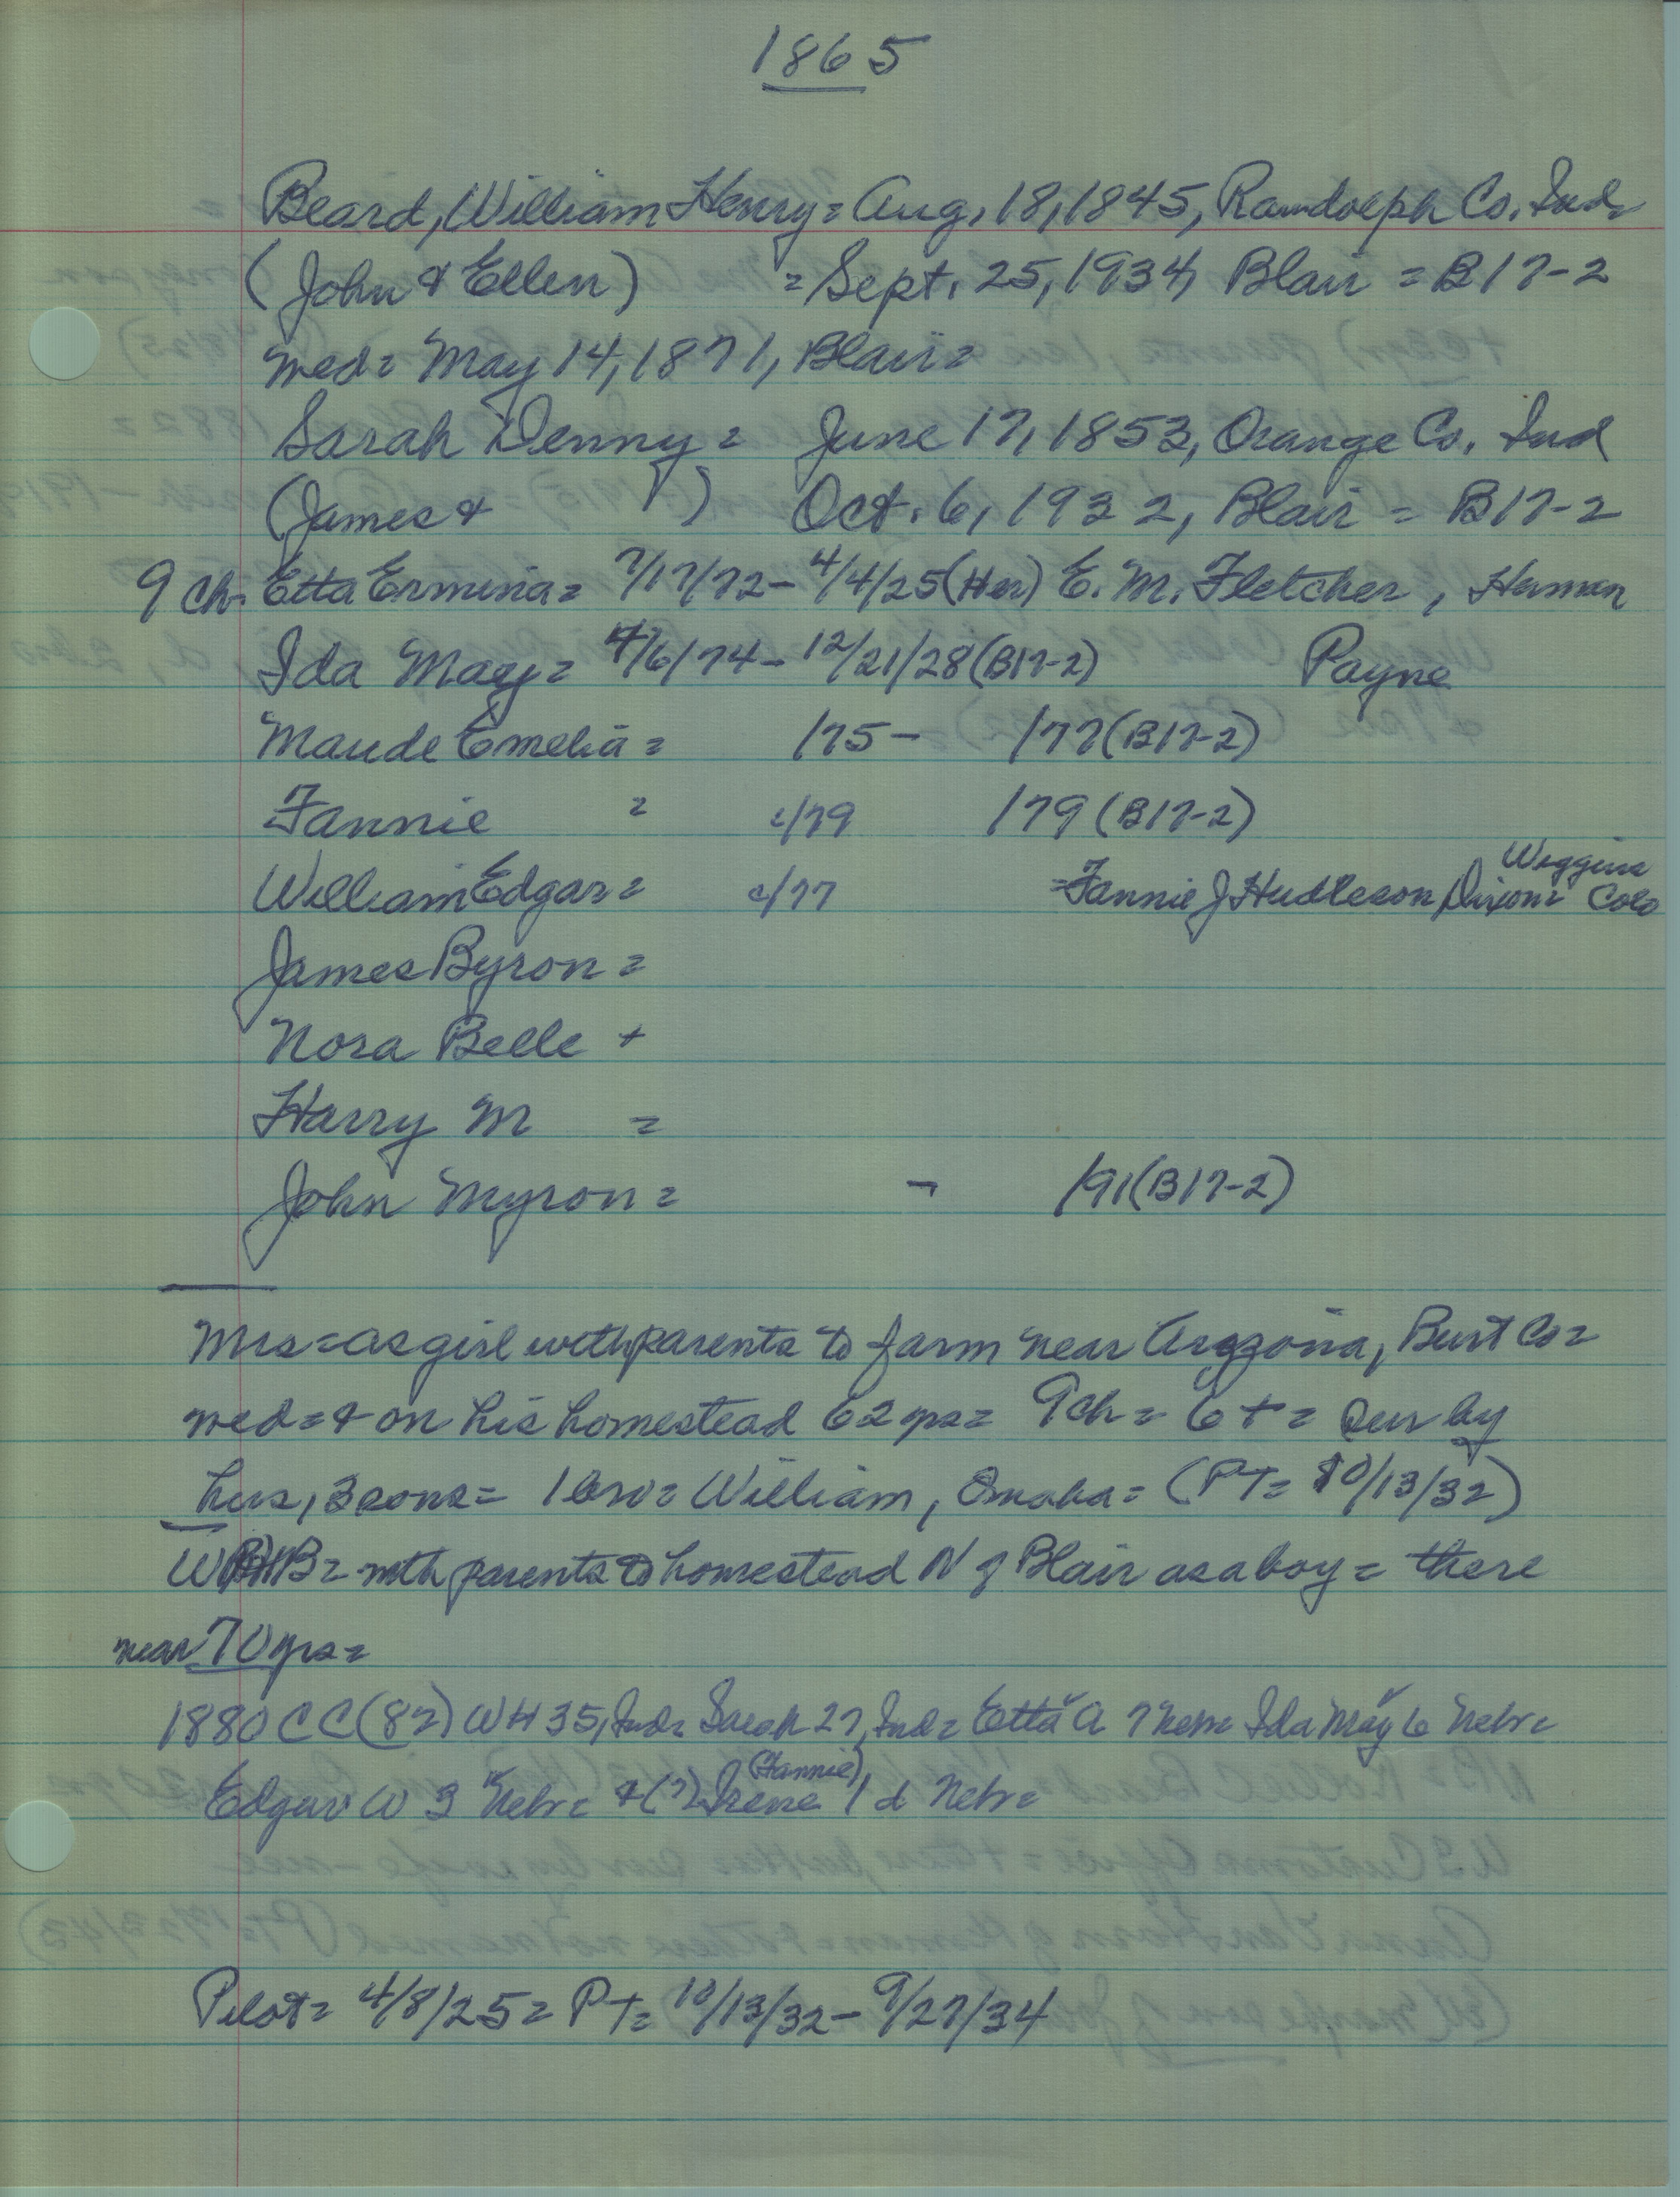 1865
Beard, William Henry = Aug, 18, 1845, Randolph Co. Ind.
(John & Ellen) = Sept. 25, 1934, Blair = B17-2
med = May 14, 1871, Blair =
Sarah Denny = June 17, 1853, Orange Co. Ind
(James & ) Oct. 6, 1932, Blair = B17-2
9 ch. Etta Ermina = 7/17/72 - 4/4/25 (Her) E. M. Fletcher, Herman
Ida May = 4/6/74 - 12/21/28 (B17-2) Payne
Maude Emelia = /75 - /77 (B17-2)
Fannie = c/79 /79 (B17-2)
William Edgar = c/77 = Fannie J Hudleson Dixon = Wiggins Colo
James Byron =
Nora Belle +
Harry M =
John Myron = - /91 (B17-2)
Mrs = as girl with parents to farm near Arizona, Burt Co =
med = & on his homestead 62 yrs = 9 ch = 6 + = sur by
hus, 3 sons = 1 bro = William, Omaha = (PT = 10/13/32)
WHB = with parents to homestead N of Blair as a boy = there
near 70 yrs =
1880 CC (82) WH 35, Ind = Sarah 27, Ind = Etta A 7 Nebr = Ida May 6 Nebr =
Edgar W 3 Nebr = & (?) Irene (Fannie) 1 d Nebr =
Pilot = 4/8/25 = PT = 10/13/32 - 9/27/34